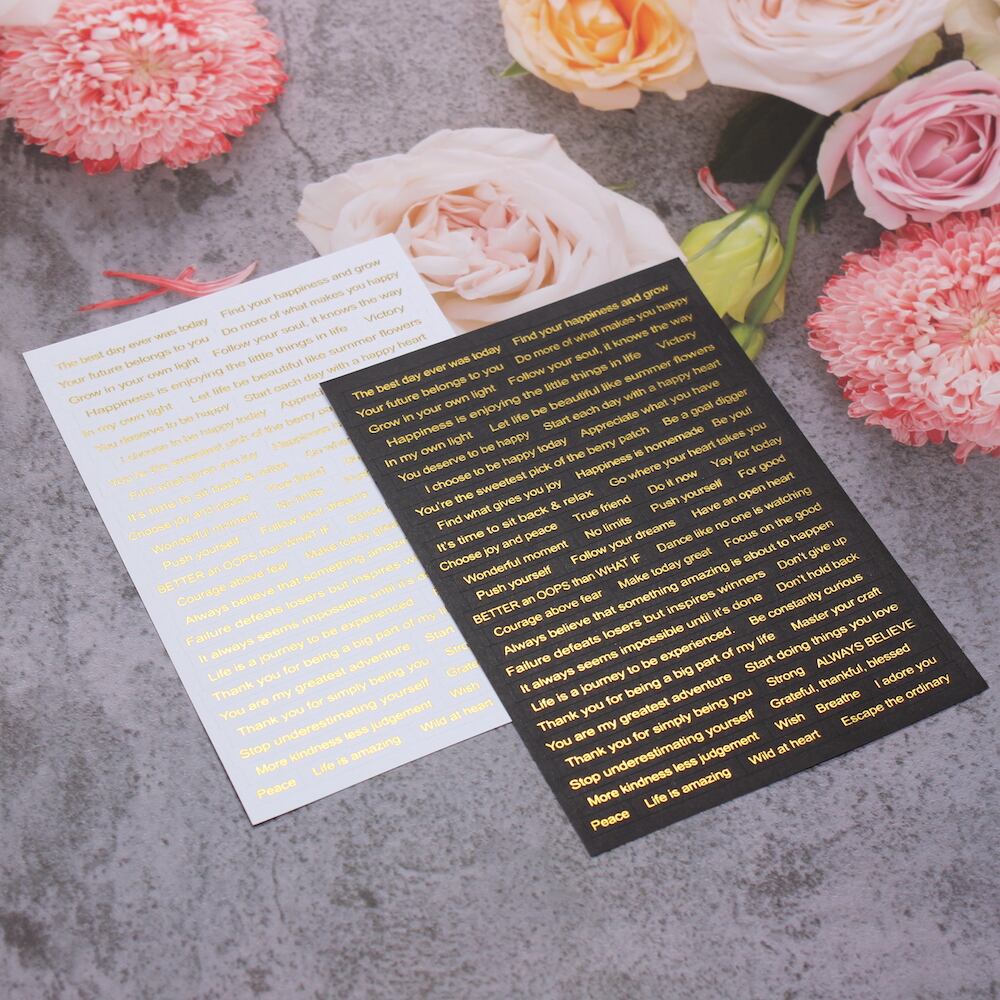 The best day ever was today Find your happiness and grow
Your future belongs to you Do more of what makes you happy
Grow in your own light Follow your soul, it knows the way
Happiness is enjoying the little things in life Victory
In my own light Let life be beautiful like summer flowers
You deserve to be happy Start each day with a happy heart
I choose to be happy today
You're the sweetest pick of the berry
Find what gives you joy Happiness
It's time to sit back & relax
Choose joy and peace True friend
Wonderful moment No limits
Push yourself Follow your dreams
BETTER an OOPS than WHAT IF
Courage above fear Make today great
Always believe that something amazing
Failure defeats losers but inspires
It always seems impossible until it's
Life is a journey to be experienced
Thank you for being a big part of my
You are my greatest adventure
Thank you for simply being you
Stop underestimating yourself
More kindness less judgement Wish
Peace Life is amazing Wild at heart
The best day ever was today Find your happiness and grow
Your future belongs to you Do more of what makes you happy
Grow in your own light Follow your soul, it knows the way
Happiness is enjoying the little things in life Victory
In my own light Let life be beautiful like summer flowers
You deserve to be happy Start each day with a happy heart
I choose to be happy today Appreciate what you have
You're the sweetest pick of the berry patch Be a goal digger
Find what gives you joy Happiness is homemade Be you!
It's time to sit back & relax Go where your heart takes you
Choose joy and peace True friend Do it now Yay for today
Wonderful moment No limits Push yourself For good
Push yourself Follow your dreams Have an open heart
BETTER an OOPS than WHAT IF Dance like no one is watching
Courage above fear Make today great Focus on the good
Always believe that something amazing is about to happen
Failure defeats losers but inspires winners Don't give up
It always seems impossible until it's done Don't hold back
Life is a journey to be experienced. Be constantly curious .
Thank you for being a big part of my life Master your craft
You are my greatest adventure Start doing things you love
Thank you for simply being you Strong ALWAYS BELIEVE
Stop underestimating yourself Grateful, thankful, blessed
More kindness less judgement Wish Breathe I adore you
Peace Life is amazing Wild at heart Escape the ordinary